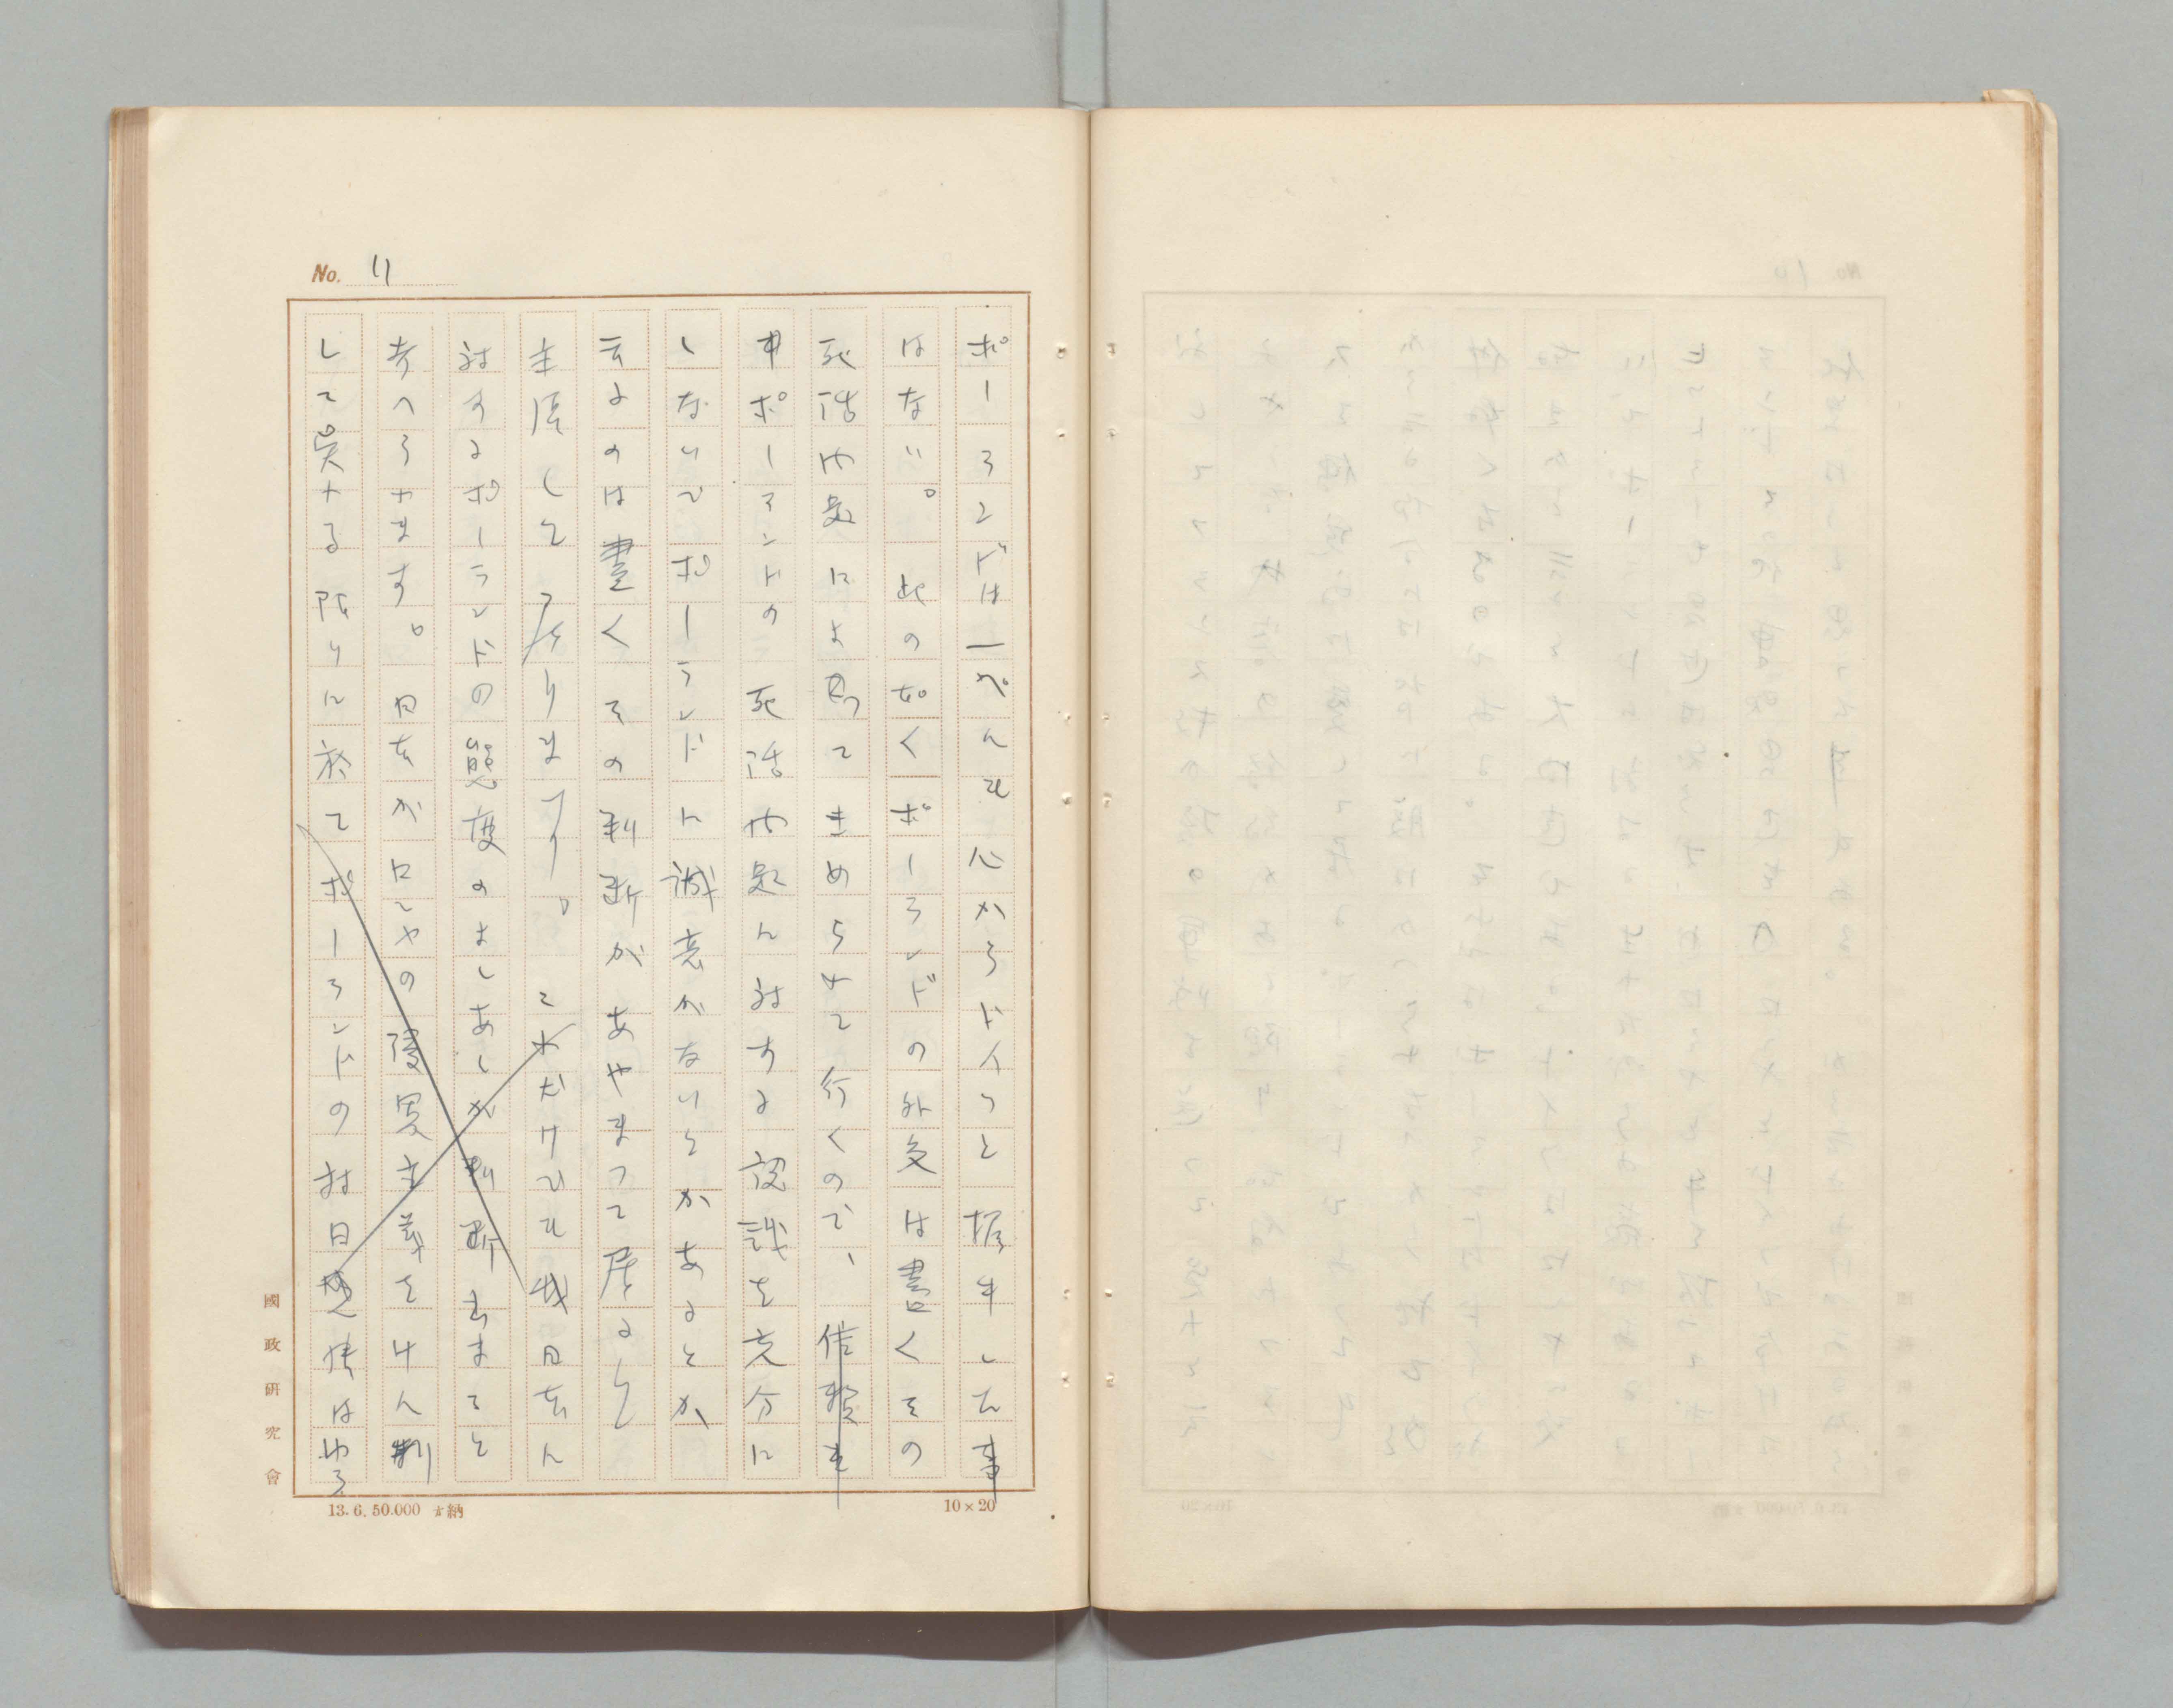 No. 11
ポーランドは一ぺんも心からドイツと握手した事
はない。此の如くポーランドの外交は書くその
死活や是によ つてきめられて行くので、信頼を
ポーランドの死活や是に対する認識を充分に
しないでポーランドに誠意がないとかあるとか
云ふのは書くその判断があやまつて居ると
主張して居ります。これだけでも我日本に
対するポーランドの態度のよしあしが判断出来ると
考へられます。日本がロシヤの侵畧主義をけん制
して呉れる限りに於てポーランドの対日感情は
國政研究會
13. 6. 50.000 納
10×20